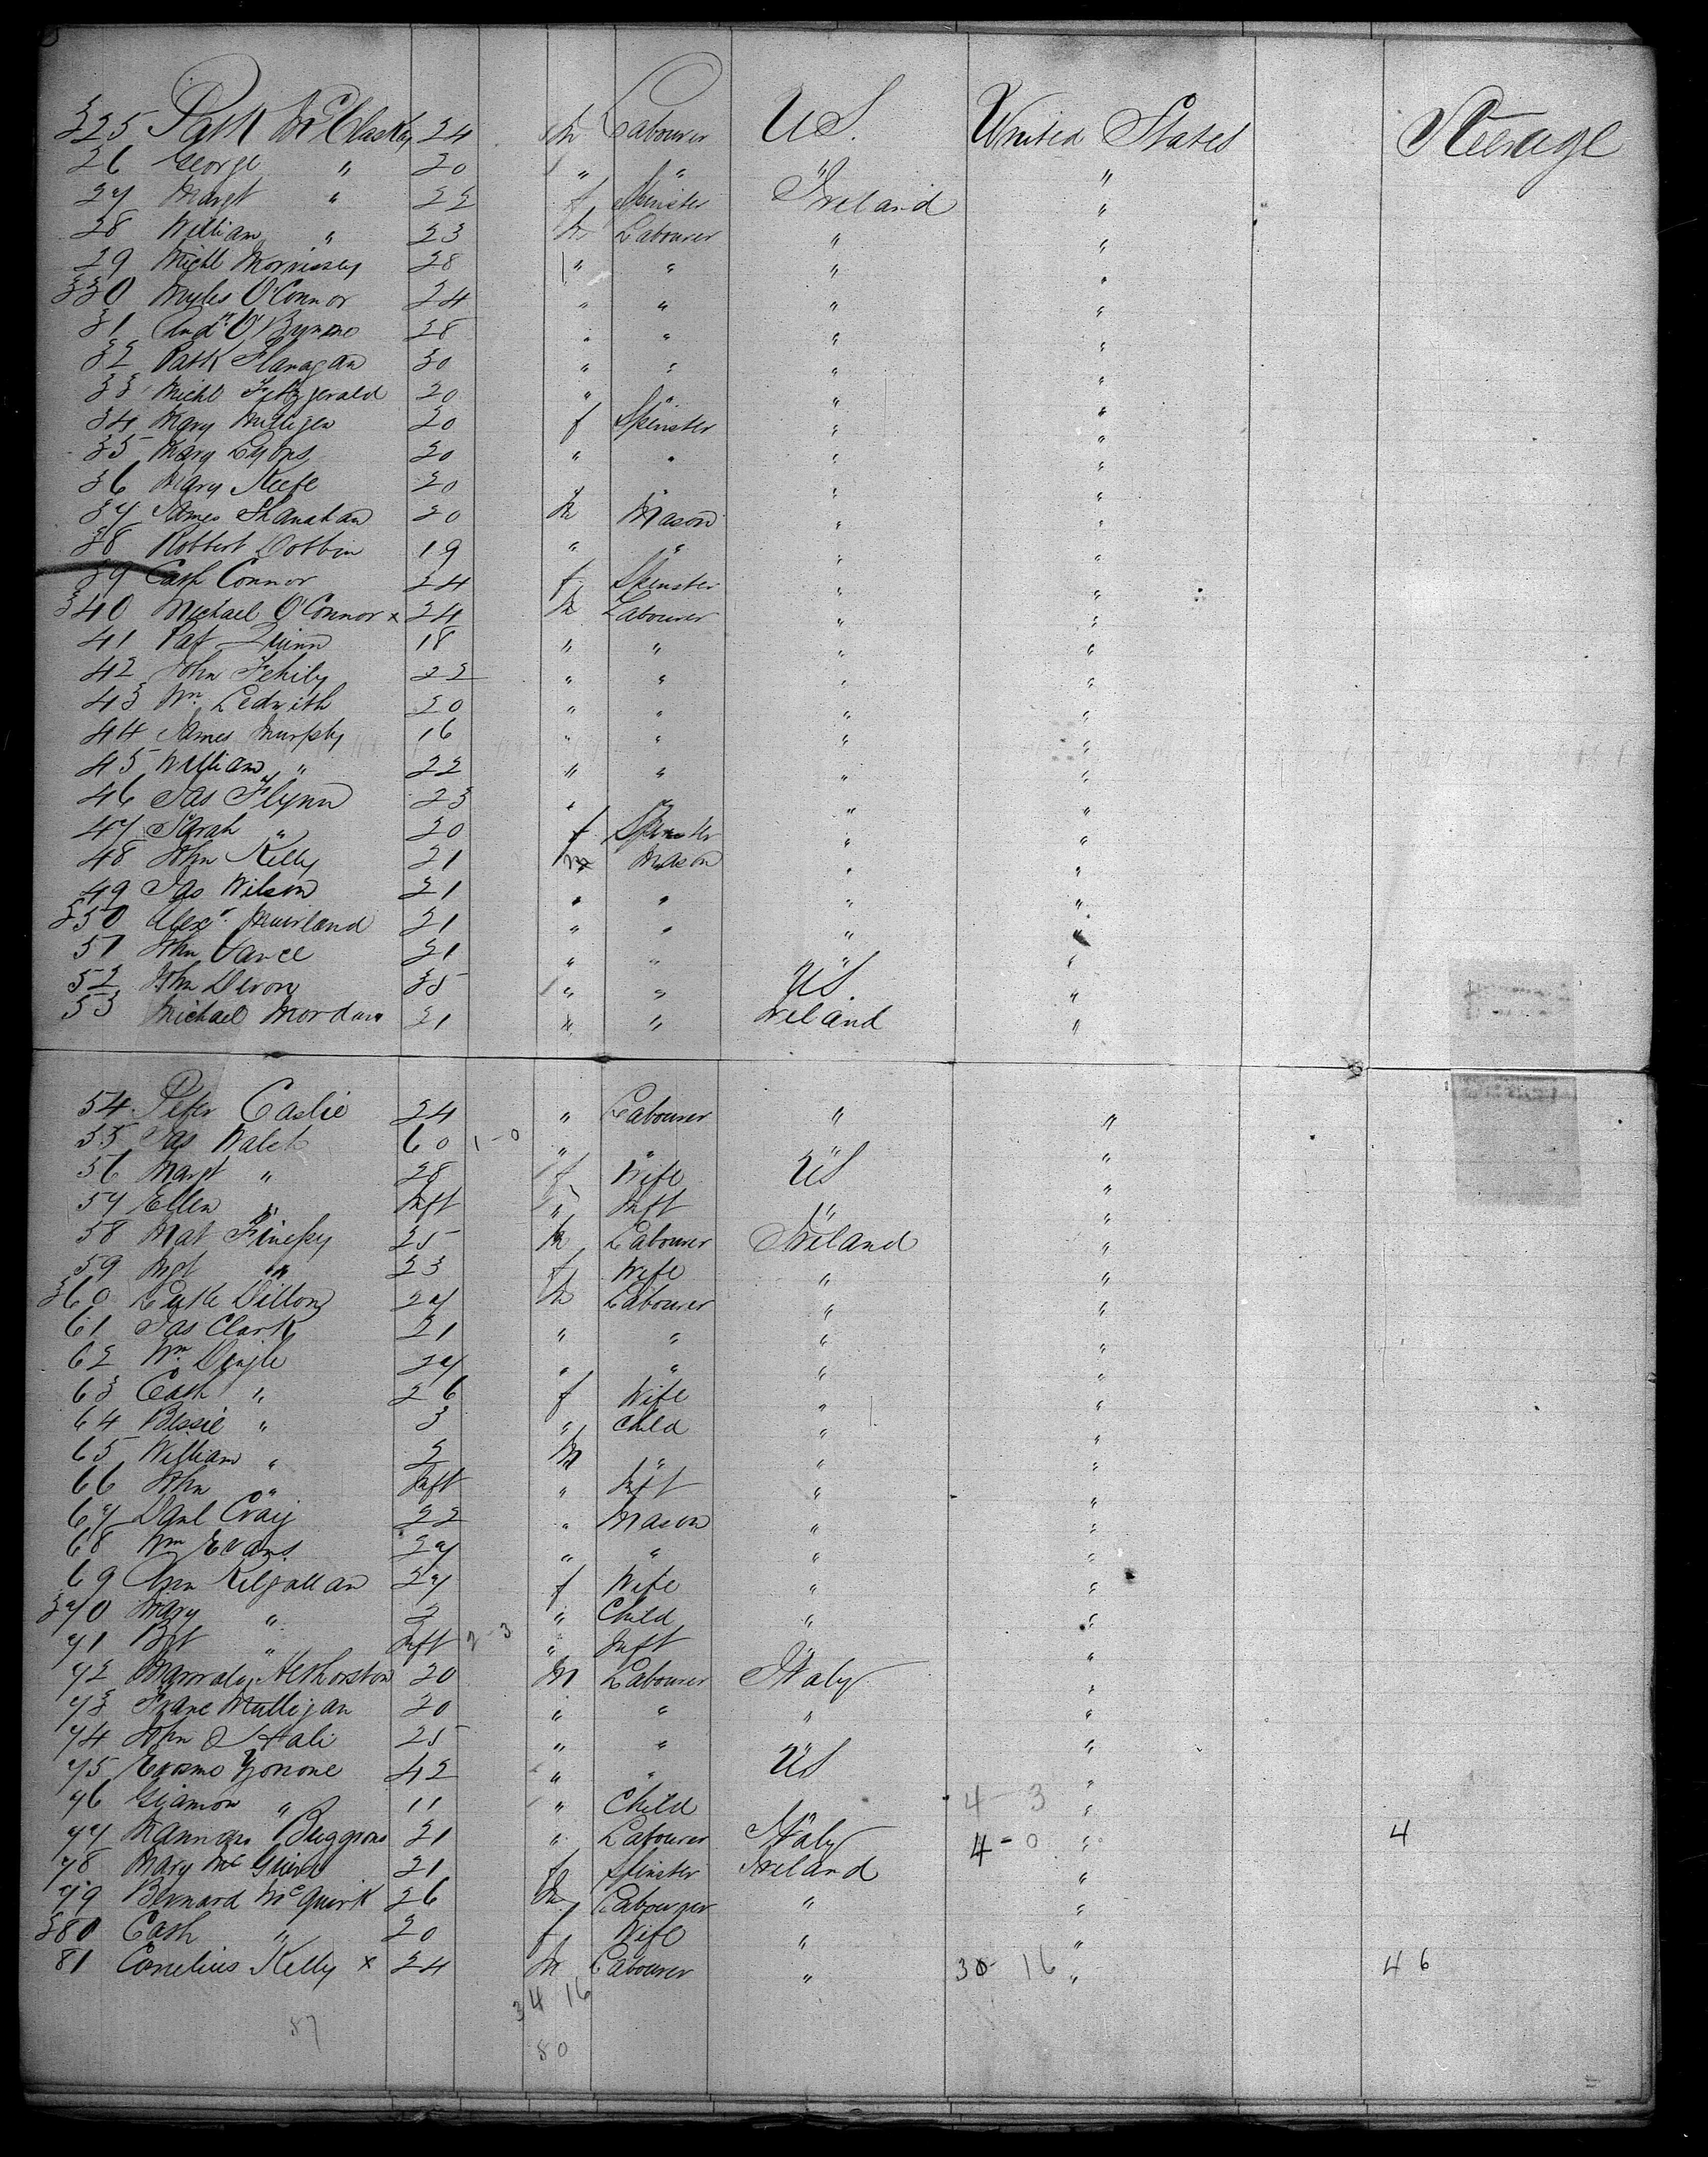 325 Patk McClaskey 24 m Labourer U.S. United States Steerage
26 George " 20 " " " "
27 Margt " 22 f Spinster Ireland "
28 William " 23 m Labourer " "
29 Michl Morrissey 28 " " " "
330 Myles O'Connor 24 " " " "
31 Andw O'Byrne 28 " " " "
32 Patk Flanagan 30 " " " "
33 Michl Fitzgerald 20 " " " "
34 Mary Milligen 20 f Spinster " "
35 Mary Lyons 20 " " " "
36 Mary Keefe 20 " " " "
37 James Shanahan 20 m Mason " "
38 Robbert Dobbin 19 " " " "
39 Cath Connor 24 f Spinster " "
340 Michael O'Connor x 24 m Labourer " "
41 Pat Quinn 18 " " " "
42 John Fehily 22 " " " "
43 Wm. Ledwith 20 " " " "
44 James Murphy 16 " " " "
45 William " 22 " " " "
46 Jas Flynn 23 " " " "
47 Sarah " 20 f Spinster " "
48 John Kelly 21 m Mason " "
49 Jas Wilson 21 " " " "
350 Alexr. Muirland 21 " " " "
51 John Vance 21 " " " "
52 John Devon 35 " " US. "
53 Michael 21 " " Ireland "
54 Peter Caslie 24 " Labourer " "
55 Jas Walch 60 1-0 " " " "
56 Margt " 28 f Wife US "
57 Ellen " Inft " Inft " "
58 Mat 25 m Labourer Ireland "
59 Mgt " 23 f Wife " "
360 Luke Dillon 27 m Labourer " "
61 Jas Clark 21 " " " "
62 Wm Dingle 27 " " " "
63 Cath " 26 f Wife " "
64 Bessie " 3 " Child " "
65 William " 2 M " " "
66 John " Inft " Inft " "
67 Danl Craig 22 " Mason " "
68 Wm Evans 27 " " " "
69 Ann Kilgallan 27 f Wife " "
370 Mary " 2 " Child " "
71 Bgt " Inft 2-3 " Inft " "
72 20 M Labourer Italy "
73 Franc Mulligan 20 " " " "
74 John 25 " " " "
75 42 " " US "
76 " 11 " Child 4-3 "
77 21 " Labourer Italy 4-0 " 4
78 Mary Mc 21 f Spinster Ireland "
79 Bernard McQuirk 26 m Labourer " "
380 Cath " 20 f Wife " "
81 Cornelius Kelly x 24 m Labourer " 30 16 " 46
34 16
87
80